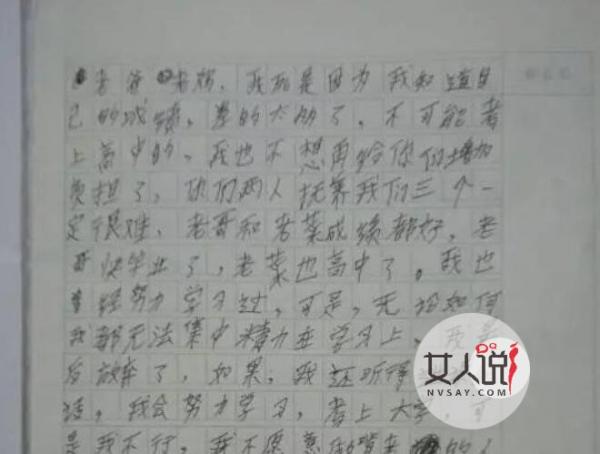 老爸老妈，我死是因为我知道自
己的成绩，差的太多了，不可能考
上高中的、我也不想再给你们增加
负担了，你们两人抚养我们三个一
定很难，老哥和老菜成绩都好，老
快毕业了，老菜也高中了。我也
经努力学习过，可是，无论如何
我都无法集中精力在学习上，我
后放弃了，如果，我还听得
话，我会努力学习，考上大学，可
是我不行，我不愿意
女人说
NVSAY.COM